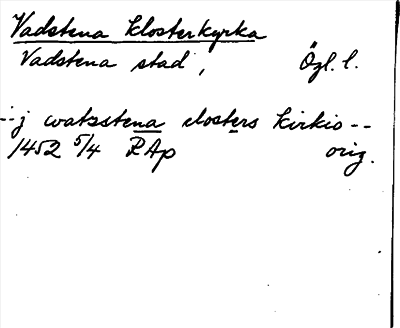 Vadstena klosterkyrka
Vadstena stad, Ögl. l.
--j watzstena closters kirkio--
1452 5/4 RAp orig.